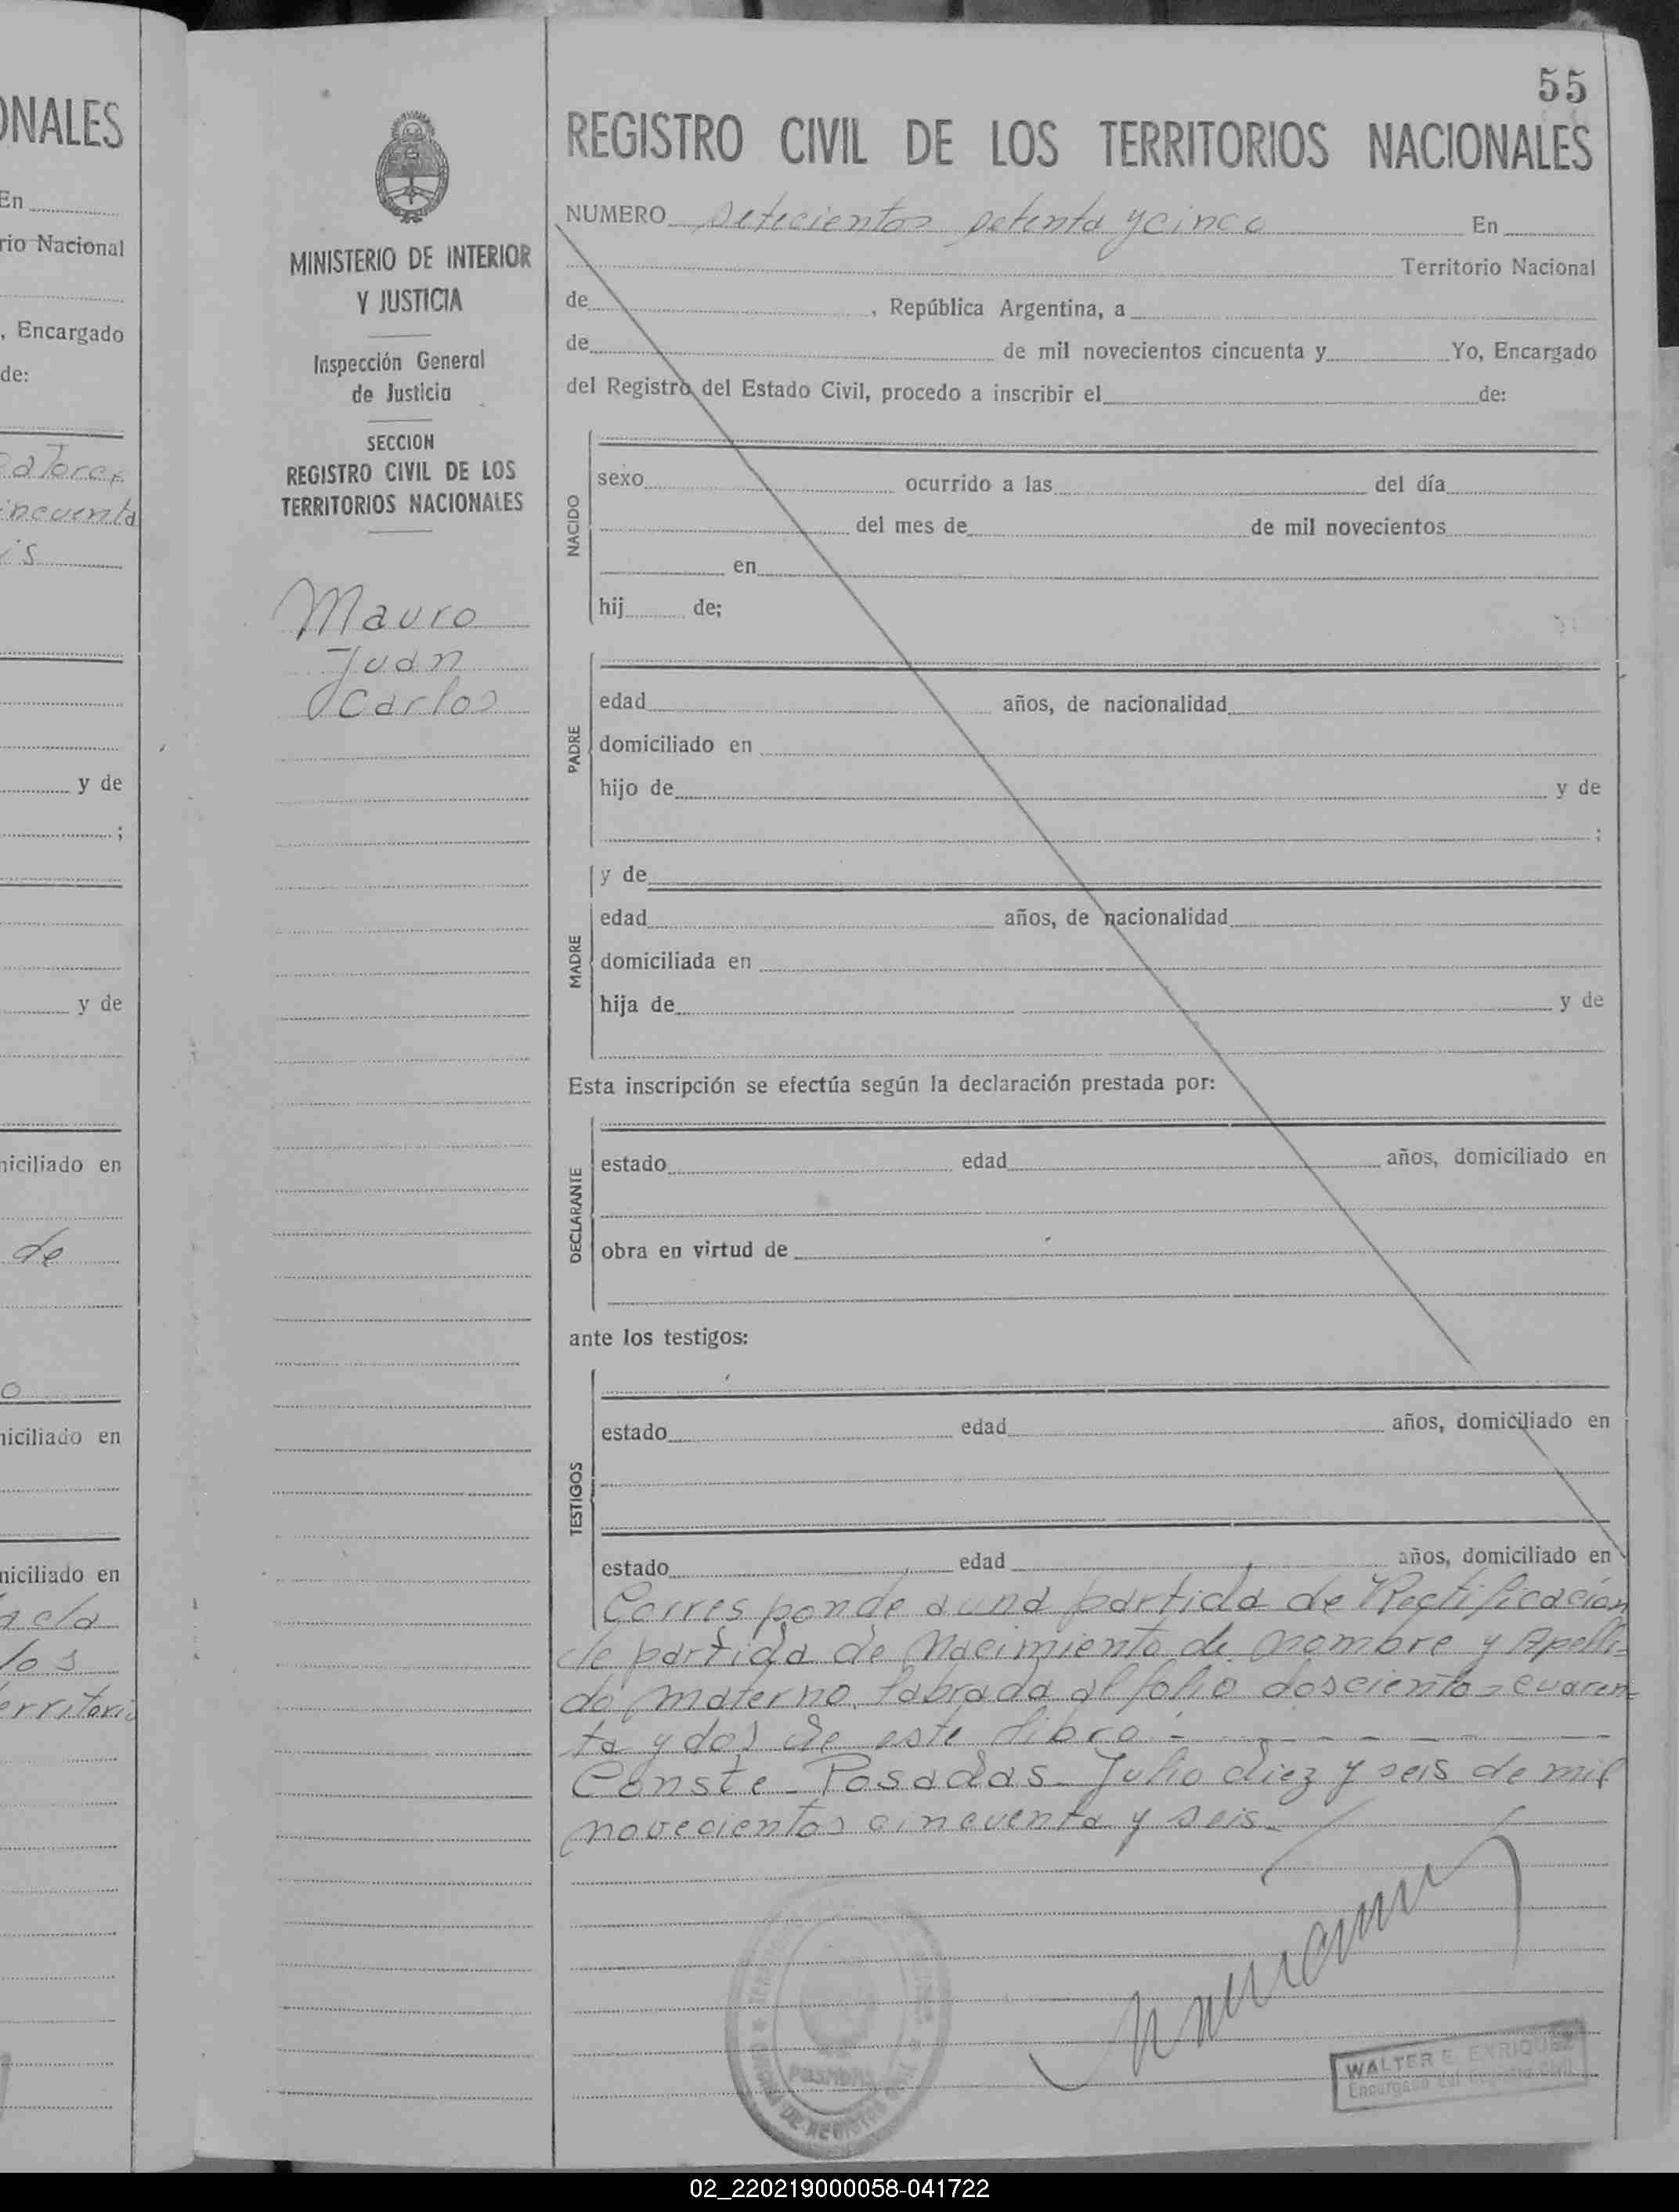 ONALES
En
rio Nacional
, Encargado
de:
atorce
incuenta
is
y de
;
y de
niciliado en
de
o
niciliado en
niciliado en
los
erritorio
MINISTERIO DE INTERIOR
Y JUSTICIA
Inspección General
de Justicia
SECCION
REGISTRO CIVIL DE LOS
TERRITORIOS NACIONALES
Mauro
Juan
Carlos
55
REGISTRO CIVIL DE LOS TERRITORIOS NACIONALES
NUMERO setecientos setenta y cinco En
Territorio Nacional
de , República Argentina, a
de de mil novecientos cincuenta y Yo, Encargado
del Registro del Estado Civil, procedo a inscribir el de:
NACIDO
sexo ocurrido a las del día
del mes de de mil novecientos
en
hij de;
PADRE
edad años, de nacionalidad
domiciliado en
hijo de y de
;
MADRE
y de
edad años, de nacionalidad
domiciliada en
hija de y de
Esta inscripción se efectúa según la declaración prestada por:
DECLARANTE
estado edad años, domiciliado en
obra en virtud de
ante los testigos:
TESTIGOS
estado edad años, domiciliado en
estado edad años, domiciliado en
Corresponde a una partida de Rectificación
de partida de Nacimiento de nombre y Apelli-
do materno, labrada al folio doscientos cuaren-
ta y dos de este libro.-
Conste - Posadas - Julio diez y seis de mil
novecientos cincuenta y seis.-
POSADAS
WALTER E. ENRIQUEZ
Encargado del Registro Civil
02_220219000058-041722